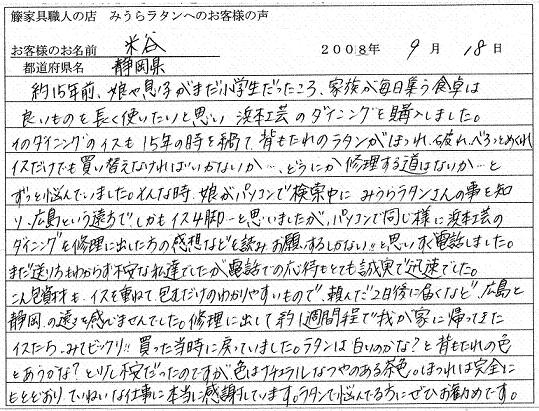 籐家具職人の店 みうらラタンへのお客様の声
お客様のお名前 米谷 2008年 9月 18日
都道府県名 静岡県
約15年前、娘や息子がまだ小学生だったころ、家族が毎日集う食卓は
良いものを長く使いたいと思い 浜本工芸のダイニングを購入しました。
そのダイニングのイスも15年の時を経て、背もたれのラタンがほつれ、破れ、べろっとめくれ
イスだけでも買い替えなければいかないか…、どうにか修理する道はないか…と
ずっと悩んでいました。そんな時、娘がパソコンで検索中に みうらラタンさんの事を知
り、広島という遠方で、しかもイス4脚…と思いましたが、パソコンで同じ様に浜本工芸の
ダイニングを修理に出した方の感想などを読み、お願いするしかない!!と思い、お電話しました。
まだ送り方もわからず不安な私達でしたが電話での応待もとても誠実で迅速でした。
こん包資材も、イスを重ねて、包むだけのわかりやすいもので、頼んだ2日後に届くなど、広島と
静岡の遠さを感じませんでした。修理に出して約1週間程で我が家に帰ってきた
イスたち、みてビックリ!! 買った当時に戻っていました。ラタンは白いのかな?と背もたれの色
とあうかな?と少し不安だったのですが色はナチュラルなつやのある茶色。ほつれは完全に
もとどおり。ていねいな仕事に本当に感謝しています。ラタンで悩んでる方にぜひお勧めです。